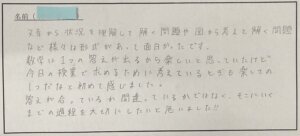 名前（　　　）
文章から状況を理解して解く問題や図から考えて解く問題
など様々な形式があって面白かったです。
数学は1つの答えが出るから楽しいと思っていたけど
今日の授業で求めるために考えているときも楽しての
1つだなと初めて感じました。
答えが合っているか間違っているかではなく、そこにいく
までの過程を大切にしたいと思いました!!